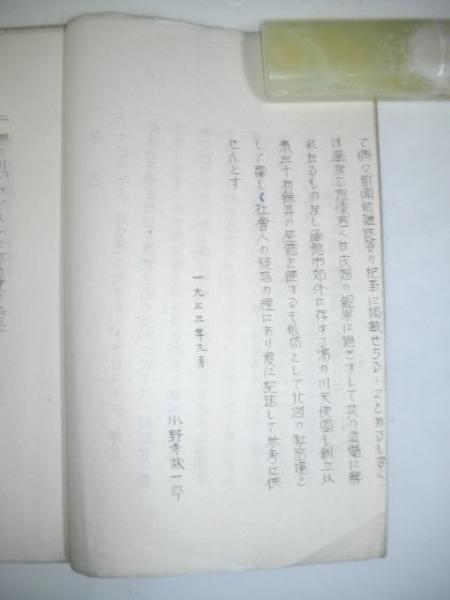 て偶々新聞紙雑誌等の記事に掲載せらるゝことあるも多く
は単なる想像若くは皮相の観察に過ぎずして其の真相に解
れたるものなし函館市郊外に存する湯の川天使園も創立以
来三十有餘年の星霜を経するも依然として北海の秘密境と
して普しく社會人の疑惑の裡にあり茲に記述して参考に供
せんとす
一九三三年九月
小野寺敬一郎